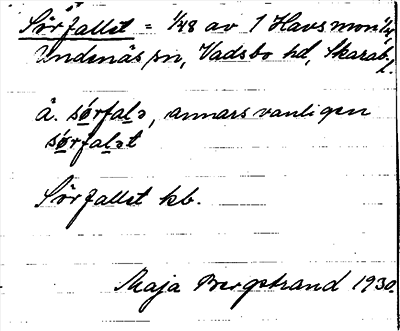 Sörfallet = 1/48 av 1 Havsmon 1/4
Undenäs sn, Vadsbo hd, Skarab. l.
å. sørfalə, annars vanligen
sørfalət
Sörfallet kb.
Maja Bergstrand 1930.